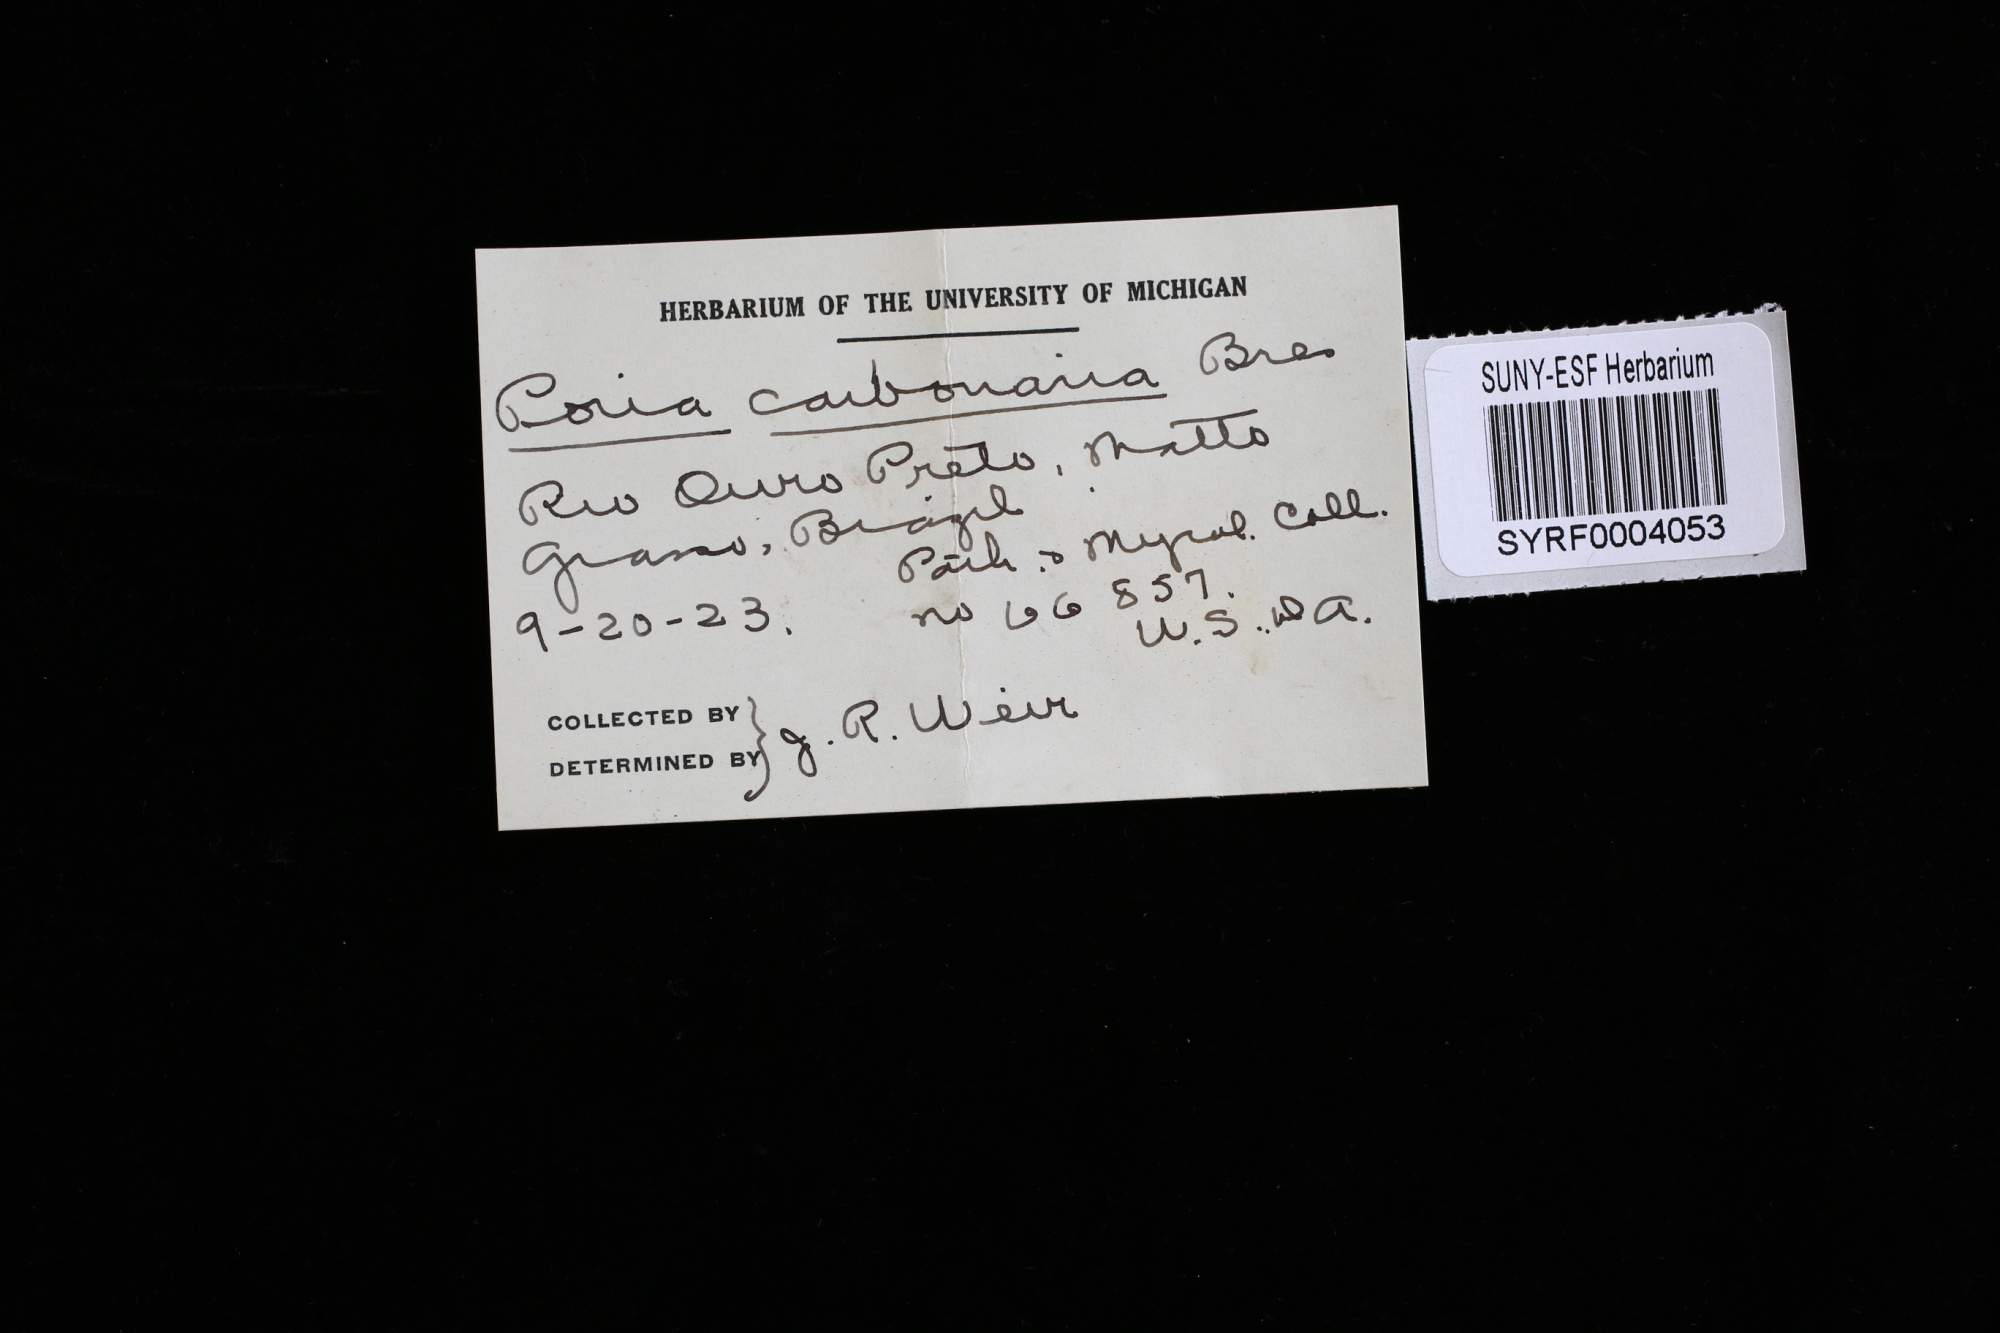 HERBARIUM OF THE UNIVERSITY OF MICHIGAN
Poria carbonaria Bres
Rio Ouro Preto, Matto
Grasso, Brazil
Path. & Mycol. Coll.
9-20-23. no 66857.
U.S.D.A.
COLLECTED BY
DETERMINED BY } J. R. Weir
SUNY-ESF Herbarium
SYRF0004053